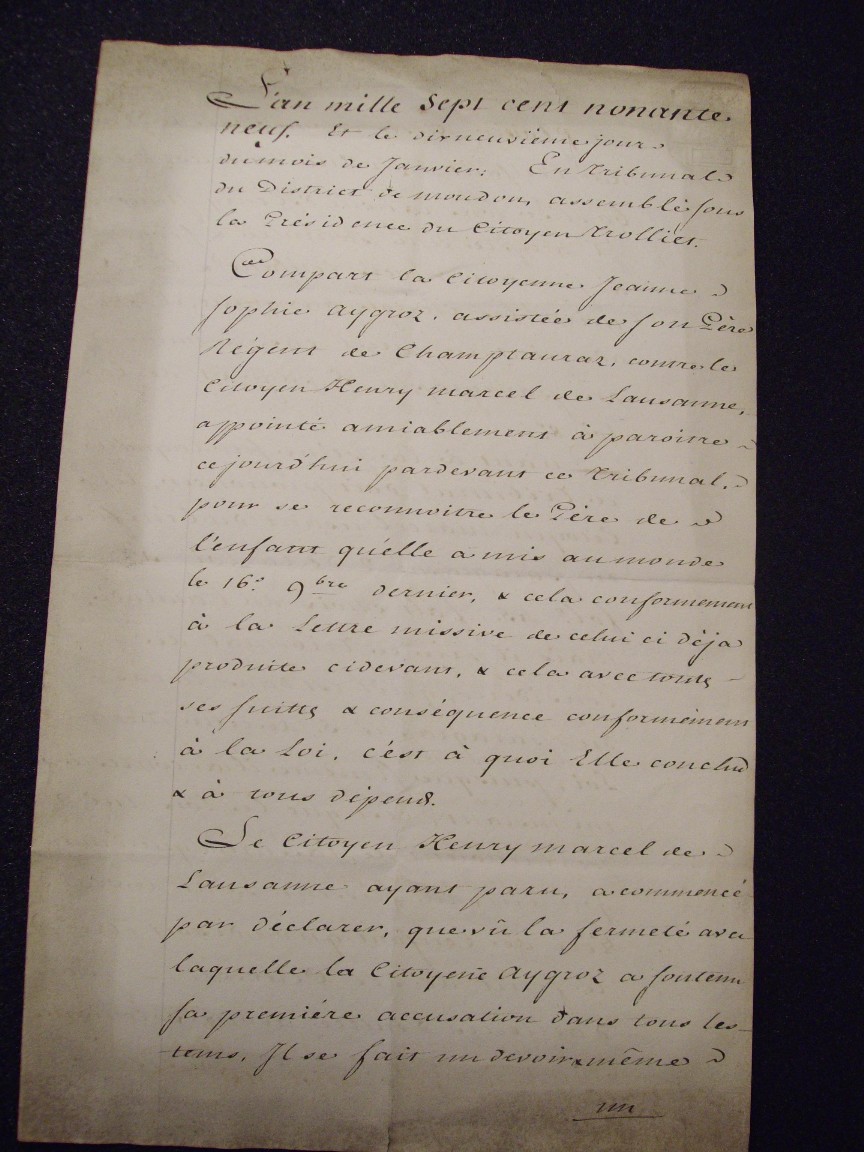 L'an mille Sept cent nonante
neuf. Et le dixneuvième jour
du mois de Janvier; En Tribunal
du District de moudon, assemblé sous
la Présidence du Citoyen Trolliet.
Compart la Citoyenne Jeanne
Sophie Aygroz, assistée de son Père
Régent de Champtauraz, contre le
Citoyen Henry marcel de Lausanne,
appointé amiablement à paroitre
ce jourd'hui pardevant ce Tribunal,
pour se reconnoitre le Père de
l'enfant qu'elle a mis au monde
le 16.e 9bre dernier, & cela conformement
à la Lettre missive de celui ci déja
produite cidevant, & cela avec toutes
ses suittes & conséquence conformément
à la Loi, c'est à quoi Elle conclud
& à tous dépends.
Le Citoyen Henry marcel de
Lausanne ayant paru, a commencé
par déclarer, que vû la fermeté avec
laquelle la Citoyene Aygroz a soutenu
sa premiére accusation dans tous les
tems, Il se fait un devoir même
un